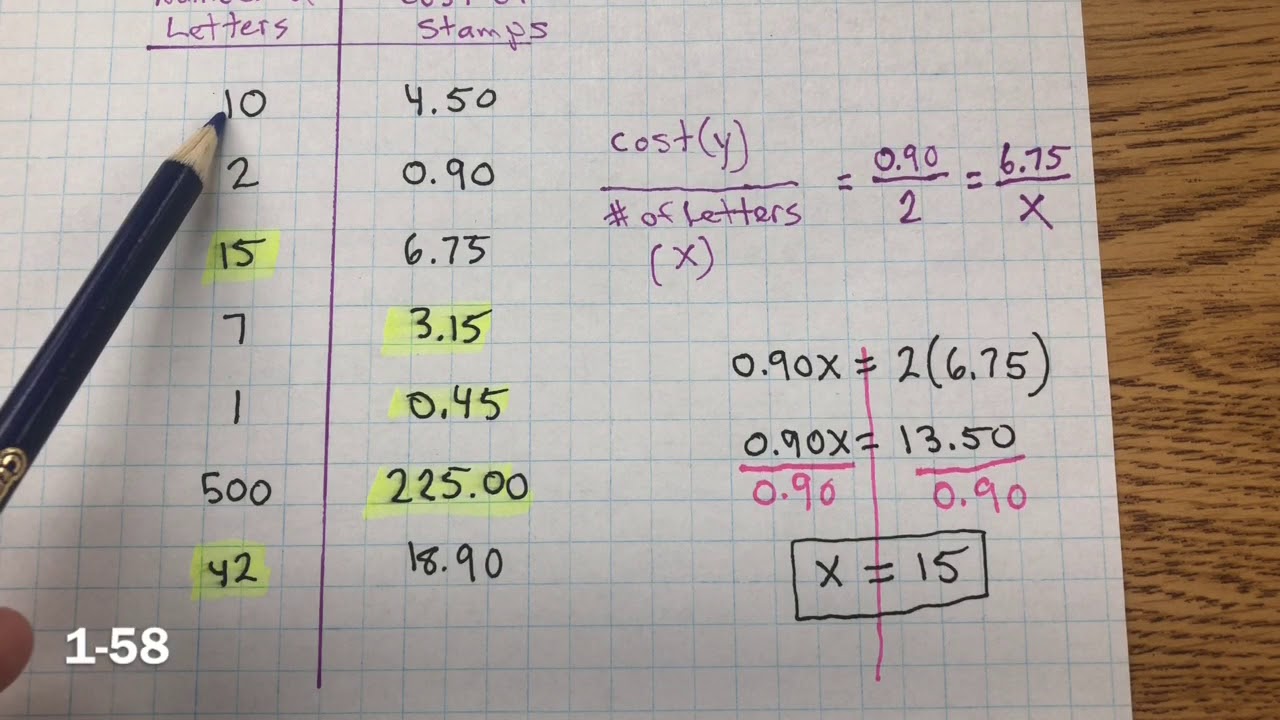 Letters
Stamps
10 4.50
2 0.90
15 6.75
7 3.15
1 0.45
500 225.00
42 18.90
cost(y) / # of Letters (x) = 0.90 / 2 = 6.75 / x
0.90x = 2(6.75)
0.90x = 13.50
0.90 0.90
x = 15
1-58